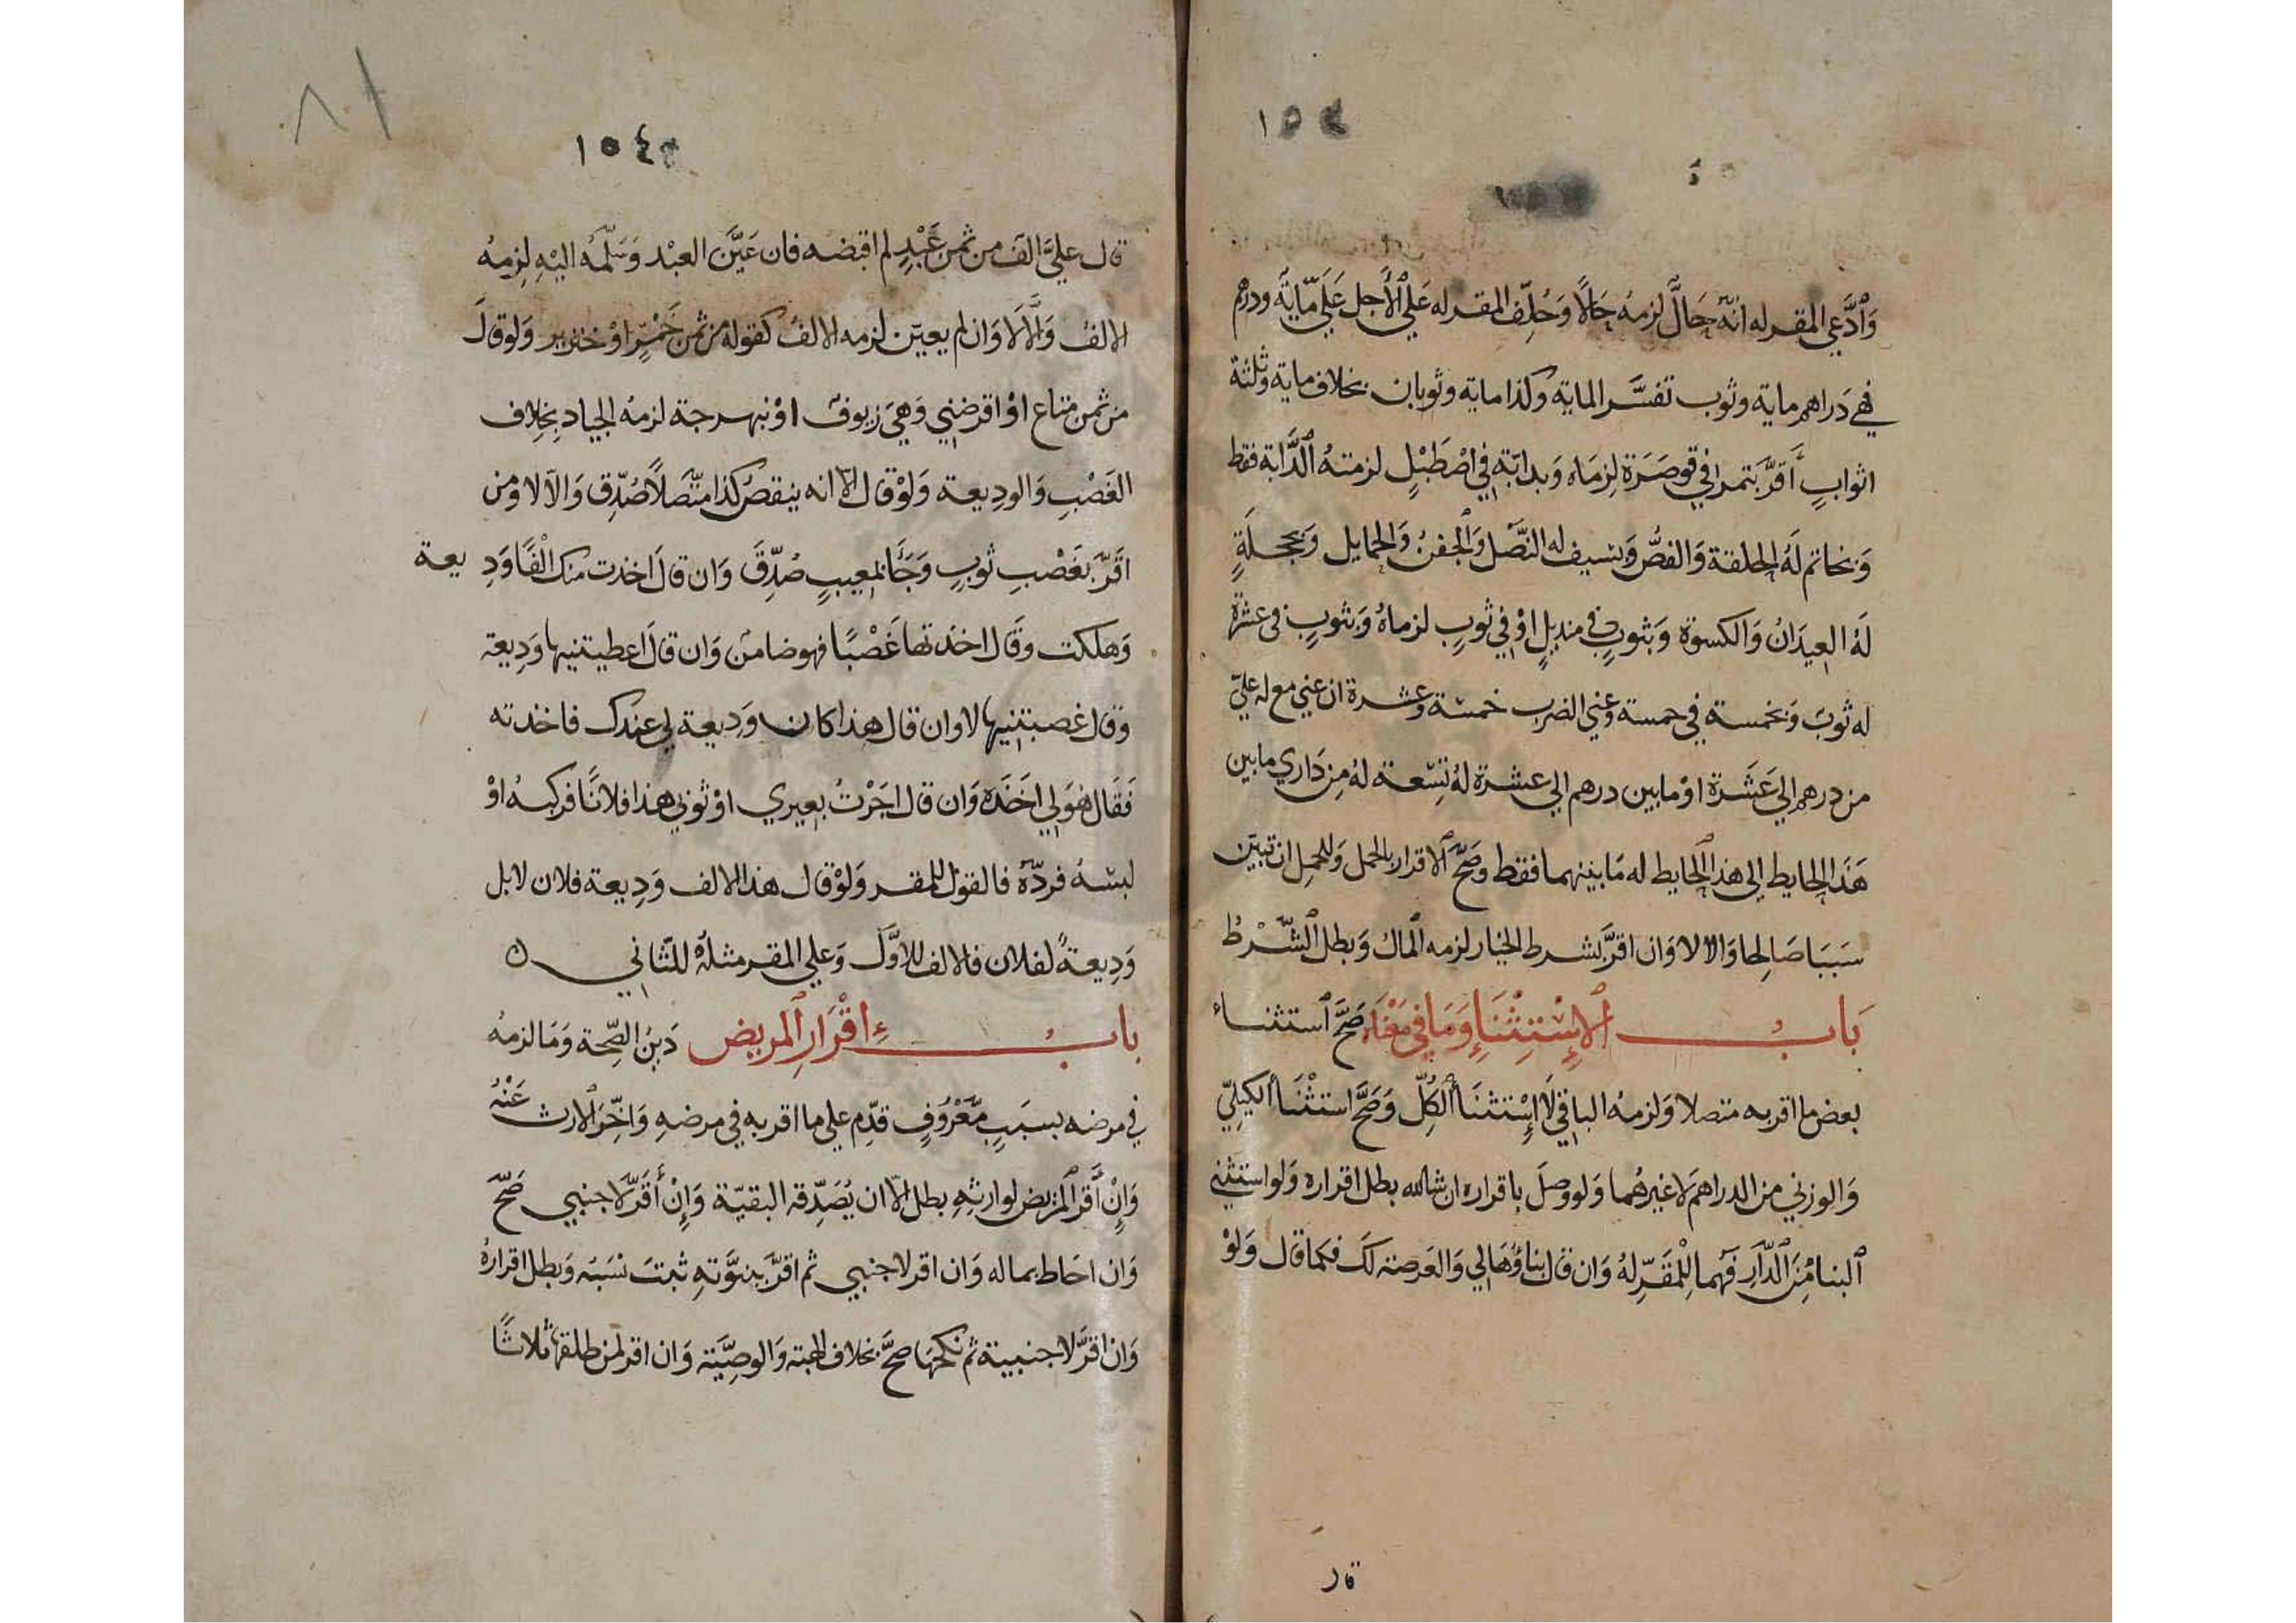 ١٥٤
وَٱدَّعى المقر له انَّه حَالّ لزمهُ حَالًا وَحُلِّف المقر له عَلي ٱلأَجل عَلَيّ مَّاية ودرهم
فهي دَراهم ماية وثوب تفسَّر الماية وكذا ماية وثوبان بخلاف ماية وثلثة
اثوابٍ أَقرَّ بتمر في قوصَرَة لزمَاه وَبدابّةٍ في اصْطَبْلٍ لزمتهُ ٱلدَّابة فقط
وَبخاتم لَهُ الحلقة وَالفصُّ وَبسيف له النَّصْل وَٱلجفنُ وَالحمايل وَبحجلةٍ
لَهُ العِيدَانُ وَالكسوة وَبثوبٍ في منديلٍ اوْ في ثوبٍ لزماهُ وَبثوبٍ في عشرة
له ثوبٌ وَبخمسة في خمسة وعني الضرب خمسَة وعشرة ان عني مع له عليّ
من درهم الي عَشَرَة اوْ مابين درهم الي عشرة لهُ تِسْعة لهُ مِن دَاري مابين
هَذا الحايط الي هذا ٱلحايط له مَابينهما فقط وصَحَّ ٱلاقرار بالحمل وَللحمل ان تبيّن
سَبَبَا صَالحا وَالا لا وَان اقرَّ بشرط الخيار لزمه ٱلمال وَبطل ٱلشَّرْط
بَابُ ٱلإِسْتِثْنَاءِ وَمَا فِي مَعْنَاه صَحَّ ٱستثناء
بعض ما اقر به متصلا وَلزمهُ الباقي لَا إِسْتثنَاأُ ٱلكُلّ وَصَحَّ استثْنَاأُ الكَيلِيّ
وَالوزني من الدراهم لَا غيرهُما وَلو وصلَ باقراره ان شاالله بطل اقراره وَلو استثني
ٱلبنا مِنَ ٱلدَّارِ فهما لِلْمُقَرِّ لهُ وَان قال بناؤُهَا لي وَالعَرصة لَك فكما قال وَلوْ
قال
٨١
١٥٤
قال عليَّ الف من ثمن عَبْدٍ لم اقبضه فان عَيَّن العبْد وَسَلّمهُ اليْهِ لزمهُ
الالفُ وَاِلَّا لَا وَان لم يعيّن لزمه الالفُ كقوله من ثمن خَمْرٍ اوْ خنزير وَلو قالَ
من ثمن متاع اوْ اقرضني وَهيَ زيوفٌ اوْ نبهرجة لزمهُ الجياد بخلاف
الغَصْبِ وَالودِيعة وَلوْ قال الا انه ينقصُ كذا متّصَلًا صُدِّق وَالا لا ومن
اقَرّ بغَصْبِ ثوبٍ وَجَاَ بمعيبٍ صُدِّقَ وَان قالَ اخذت منك الْفًا وَدِيعة
وَهلكت وقَال اخذتها غَصْبًا فهو ضامن وَان قالَ اعطيتنيها وَدِيعة
وقال غصبتنيها لا وان قال هذا كان وَدِيعة لي عندك فاخذته
فَقَال هوَ لي اخَذَه وَان قال اجَرْتُ بعيري اوْ ثوبي هذا فلانًا فركبهُ اوْ
لبسهُ فردَّهُ فالقول للمقر وَلوْ قال هذا الالف وَدِيعة فلان لا بل
وَدِيعةً لفلان فالالف للاوَّل وَعلي المقر مثلهُ للثّاني ن
بابُ اقْرَارِ ٱلمريض دَينُ الصّحة وَمَا لزمهُ
في مرضه بسبَبٍ مَّعْرُوفٍ قدِّم علي ما اقر به في مرضهِ وَاخّر الارث عَنْهُ
وَإِنْ أَقرّ المريض لوارثِهِ بطل الا ان يُصَدِّقه البقيّة وَإِنْ أَقَرّ لاجنبي صَحَّ
وَان احَاط بماله وَان اقر لاجنبي ثم اقرَّ ببنوَّتهِ ثبتَ نسَبَه وَبطل اقرارهُ
وَان اقرَّ لاجنبية ثم نكحهَا صَحَّ بخلاف الهبة وَالوصِيَّة وَان اقر لمن طلقها ثلاثًا